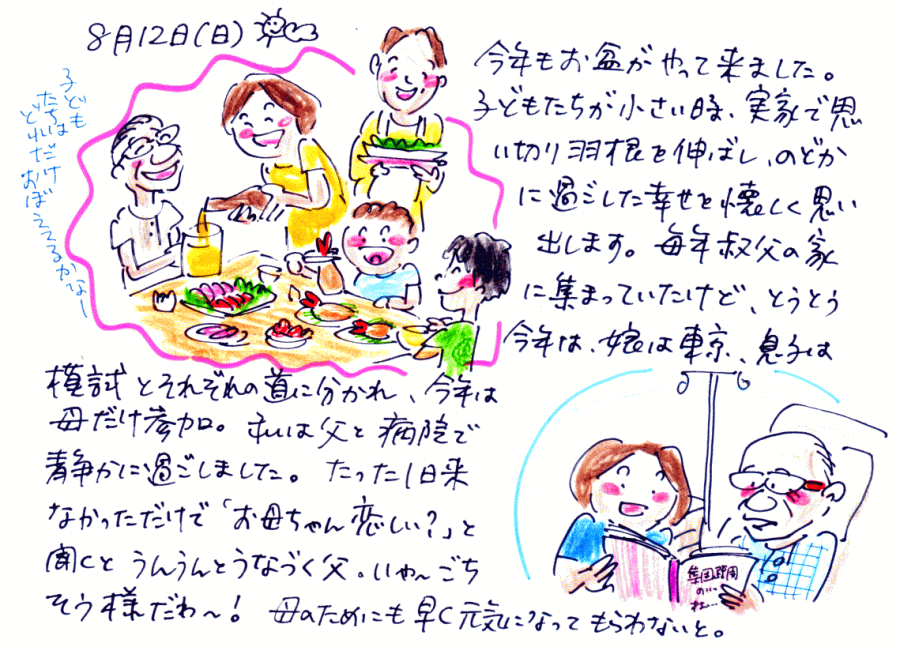 8月12日(日)
子ども
たちは
どれだけ
おぼえてるかなー
今年もお盆がやって来ました。
子どもたちが小さい時、実家で思
い切り羽根を伸ばし、のどか
に過ごした幸せを懐しく思い
出します。毎年叔父の家
に集まっていたけど、とうとう
今年は、娘は東京、息子は
模試とそれぞれの道に分かれ、今年は
母だけ参加。私は父と病院で
静かに過ごしました。たった1日来
なかっただけで「お母ちゃん恋しい?」と
聞くとうんうんとうなづく父。いや〜ごち
そう様だわ〜!母のためにも早く元気になってもらわないと。